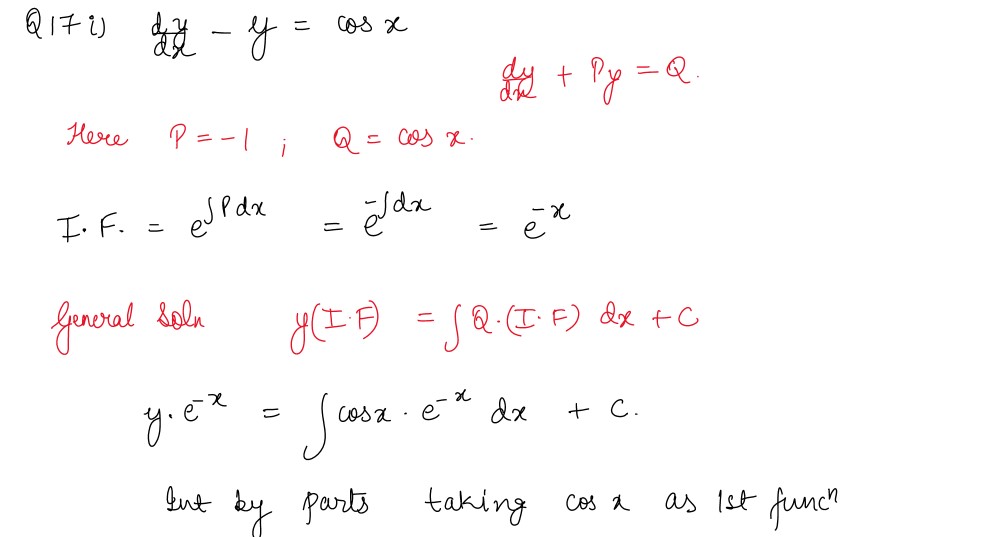 Q17 i) dy/dx - y = cos x
dy/dx + Py = Q.
Here P = -1 ; Q = cos x.
I.F. = e^∫Pdx = e^-∫dx = e^-x
General Soln y(I.F) = ∫Q.(I.F) dx + C
y.e^-x = ∫cosx . e^-x dx + C.
Int by parts taking cos x as 1st funcⁿ